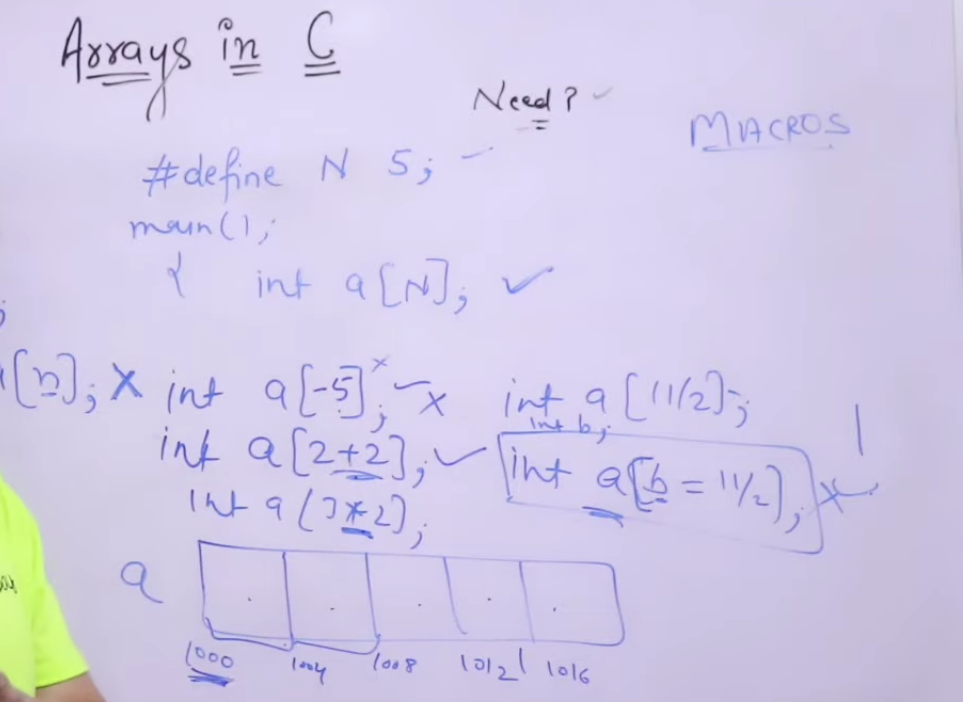 Arrays in C
Need?
MACROS
#define N 5;
main();
{ int a[N]; ✓
[n]; x
int a[-5]; x
int a[11/2];
int b;
int a[2+2]; ✓
int a[b = 11/2]; x
int a[3*2];
a
1000 1004 1008 1012 1016